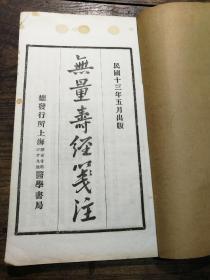 民國十三年五月出版
無量壽經箋注
總發行所上海
醫學書局